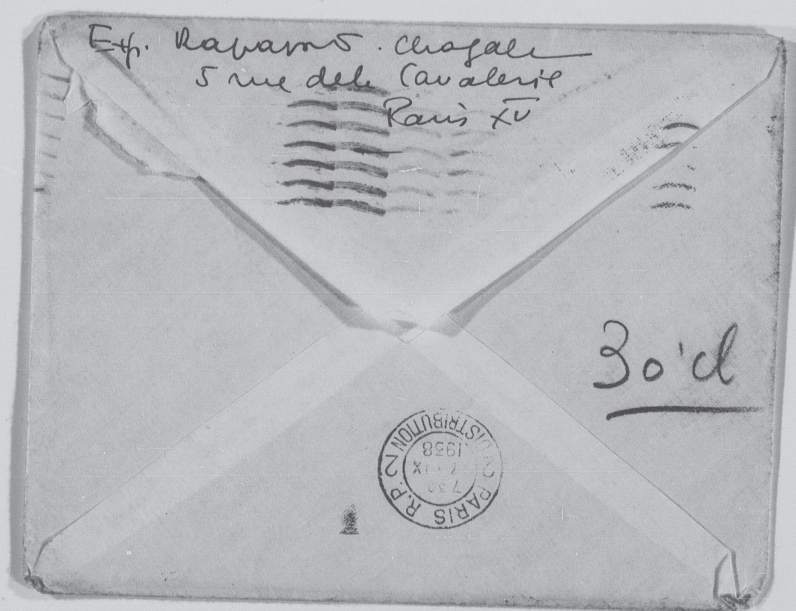 Exp. Rapaport. Chagall
5 rue de la Cavalerie
Paris XV
30'cl
PARIS R.P. 2 DISTRIBUTION 2
7 30
IX
1938